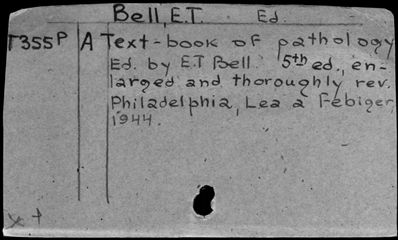 Bell, E.T. Ed.
T355P A Text-book of pathology
Ed. by E.T Bell. 5th ed., en-
larged and thoroughly rev.
Philadelphia, Lea & Febiger,
1944.